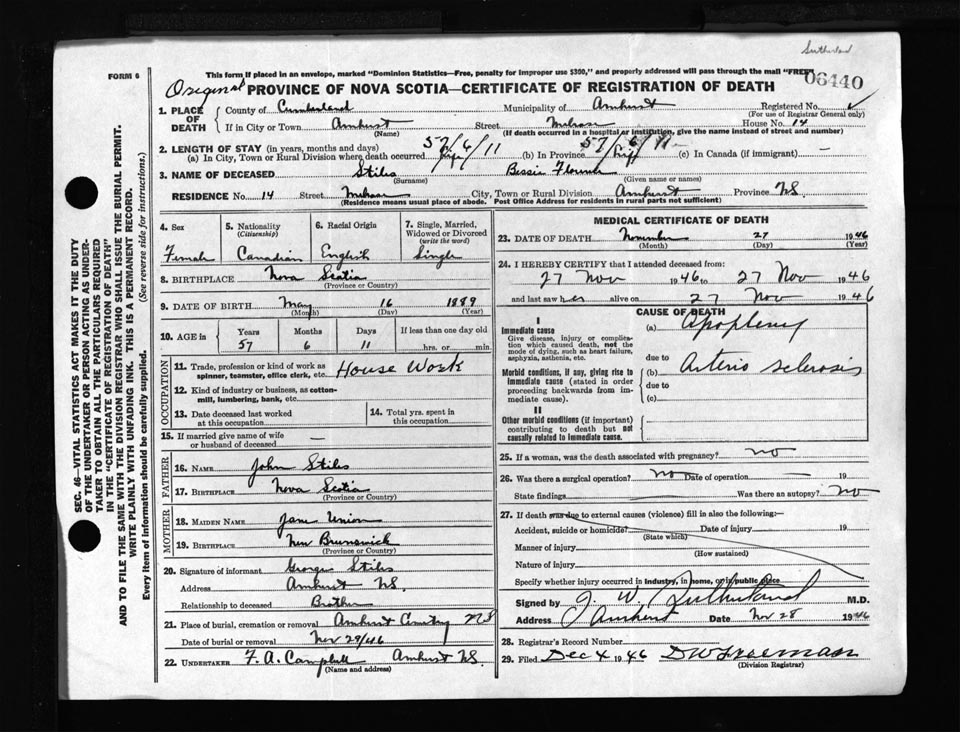 Sutherland
FORM 6
This form if placed in an envelope, marked "Dominion Statistics—Free, penalty for improper use $300," and properly addressed will pass through the mail "FREE"
06440
Original
PROVINCE OF NOVA SCOTIA—CERTIFICATE OF REGISTRATION OF DEATH
1. PLACE OF DEATH County of Cumberland Municipality of Amherst Registered No.
(For use of Registrar General only)
If in City or Town Amherst Street House No. 14
(Name) (If death occurred in a hospital or institution, give the name instead of street and number)
2. LENGTH OF STAY (in years, months and days) 57/6/11 57/6/11
(a) In City, Town or Rural Division where death occurred life (b) In Province life (c) In Canada (if immigrant) —
3. NAME OF DECEASED Stiles Bessie
(Surname) (Given name or names)
RESIDENCE No. 14 Street City, Town or Rural Division Amherst Province N.S.
(Residence means usual place of abode. Post Office Address for residents in rural parts not sufficient)
4. Sex 5. Nationality (Citizenship) 6. Racial Origin 7. Single, Married, Widowed or Divorced (write the word)
Female Canadian English Single
8. BIRTHPLACE Nova Scotia
(Province or Country)
9. DATE OF BIRTH May 16 1889
(Month) (Day) (Year)
10. AGE in Years Months Days If less than one day old
57 6 11 hrs. or min.
OCCUPATION
11. Trade, profession or kind of work as spinner, teamster, office clerk, etc. House Work
12. Kind of industry or business, as cotton-mill, lumbering, bank, etc.
13. Date deceased last worked at this occupation
14. Total yrs. spent in this occupation
15. If married give name of wife or husband of deceased —
FATHER
16. NAME John Stiles
17. BIRTHPLACE Nova Scotia
(Province or Country)
MOTHER
18. MAIDEN NAME Jane Union
19. BIRTHPLACE New Brunswick
(Province or Country)
20. Signature of informant George Stiles
Address Amherst N.S.
Relationship to deceased Brother
21. Place of burial, cremation or removal Amherst Cemetery N.S.
Date of burial or removal Nov 29/46
22. UNDERTAKER F. A. Campbell Amherst N.S.
(Name and address)
MEDICAL CERTIFICATE OF DEATH
23. DATE OF DEATH November 27 1946
(Month) (Day) (Year)
24. I HEREBY CERTIFY that I attended deceased from:
27 Nov 1946 to 27 Nov 1946
and last saw her alive on 27 Nov 1946
CAUSE OF DEATH
I
Immediate cause (a) Apoplexy
Give disease, injury or complication which caused death, not the mode of dying, such as heart failure, asphyxia, asthenia, etc.
due to
Morbid conditions, if any, giving rise to immediate cause (stated in order proceeding backwards from immediate cause).
(b) Arterio sclerosis
due to
(c)
II
Other morbid conditions (if important) contributing to death but not causally related to immediate cause.
25. If a woman, was the death associated with pregnancy? no
26. Was there a surgical operation? no Date of operation 19
State findings Was there an autopsy? no
27. If death was due to external causes (violence) fill in also the following:—
Accident, suicide or homicide? Date of injury 19
(State which)
Manner of injury
(How sustained)
Nature of injury
Specify whether injury occurred in industry, in home, or in public place
Signed by J. W. Sutherland M.D.
Address Amherst Date Nov 28 1946
28. Registrar's Record Number
29. Filed Dec 4 1946 D W Freeman
(Division Registrar)
SEC. 46—VITAL STATISTICS ACT MAKES IT THE DUTY
OF THE UNDERTAKER OR PERSON ACTING AS UNDER-
TAKER TO OBTAIN ALL THE PARTICULARS REQUIRED
IN THE "CERTIFICATE OF REGISTRATION OF DEATH"
AND TO FILE THE SAME WITH THE DIVISION REGISTRAR WHO SHALL ISSUE THE BURIAL PERMIT.
WRITE PLAINLY WITH UNFADING INK. THIS IS A PERMANENT RECORD.
Every item of information should be carefully supplied. (See reverse side for instructions.)